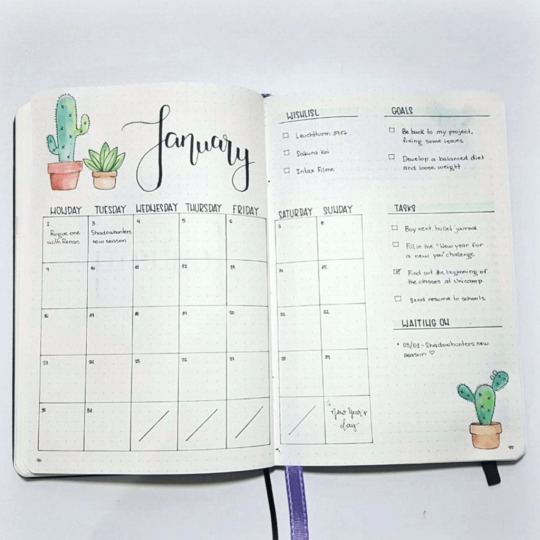 January
MONDAY TUESDAY WEDNESDAY THURSDAY FRIDAY
2 3 4 5 6
Rogue one
with Renan
Shadowhunters
new season
9 10 11 12 13
16 17 18 19 20
23 24 25 26 27
30 31
WISHLIST
Leuchtturm 1917
Sakura Koi
Intax Films
GOALS
Be back to my project,
fixing some issues
Develop a balanced diet
and loose weight
SATURDAY SUNDAY
7 8
14 15
21 22
28 29
1
New Year's
day
TASKS
Buy next bullet journal
Fill in the "New year for
a new you" challenge
Find out the beginning of
the classes at Unicamp
Send resume to schools
WAITING ON
03/01 - Shadowhunters new
season ♡